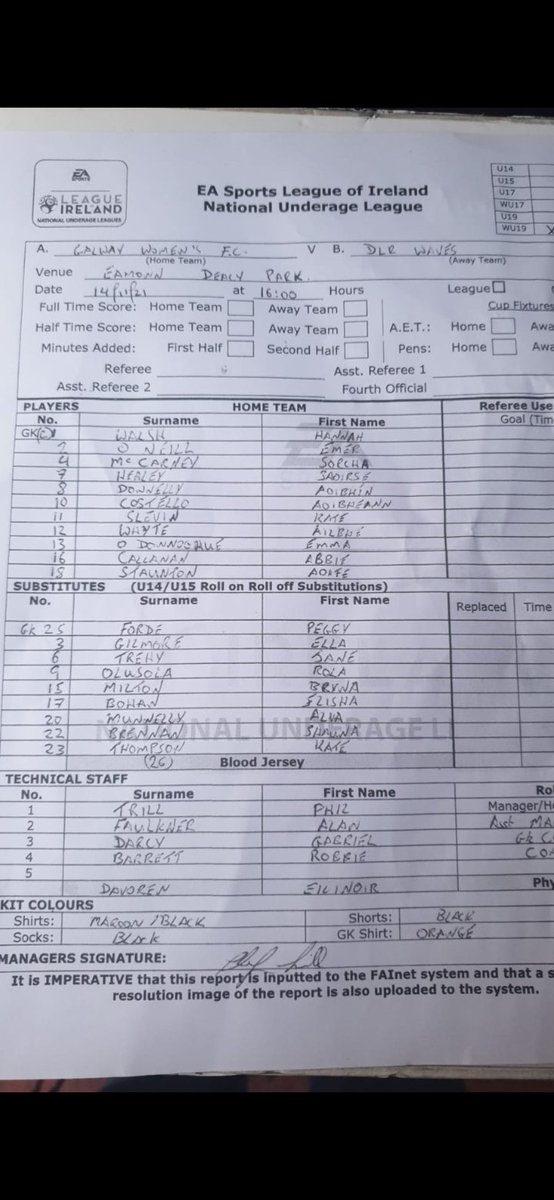 EA SPORTS
LEAGUE
IRELAND
NATIONAL UNDERAGE LEAGUES
EA Sports League of Ireland
National Underage League
U14
U15
U17
WU17
U19
WU19 X
A. GALWAY WOMEN'S F.C. V B. DLR WAVES
(Home Team) (Away Team)
Venue EAMONN DEACY PARK.
Date 14/11/21 at 16:00 Hours League
Full Time Score: Home Team Away Team Cup Fixtures
Half Time Score: Home Team Away Team A.E.T.: Home Awa
Minutes Added: First Half Second Half Pens: Home Awa
Referee Asst. Referee 1
Asst. Referee 2 Fourth Official
PLAYERS HOME TEAM Referee Use
No. Surname First Name Goal (Tim
GK(C) WALSH HANNAH
2 O NEILL EMER
4 McCARNEY SORCHA
7 HEALEY SAOIRSE
8 DONNELLY AOIBHÍN
10 COSTELLO AOIBHEANN
11 SLEVIN KATE
12 WHYTE AILBHE
13 O DONNOGHUE EMMA
16 CALLANAN ABBIE
18 STAUNTON AOIFE
SUBSTITUTES (U14/U15 Roll on Roll off Substitutions)
No. Surname First Name Replaced Time
GK 25 FORDE PEGGY
3 GILMORE ELLA
6 TREHY JANE
9 OLUSOLA ROLA
15 MILTON BRYNA
17 BOHAN ELISHA
20 MUNNELLY ALVA
22 BRENNAN SHAUNA
23 THOMPSON KATE
(26) Blood Jersey
TECHNICAL STAFF
No. Surname First Name Ro
1 TRILL PHIL Manager/H
2 FAULKNER ALAN Asst MA
3 DARCY GABRIEL GK C
4 BARRETT ROBBIE CO
5
DAVOREN EILINOIR Phy
KIT COLOURS
Shirts: MAROON/BLACK Shorts: BLACK
Socks: BLACK GK Shirt: ORANGE
MANAGERS SIGNATURE:
It is IMPERATIVE that this report is inputted to the FAInet system and that a s
resolution image of the report is also uploaded to the system.